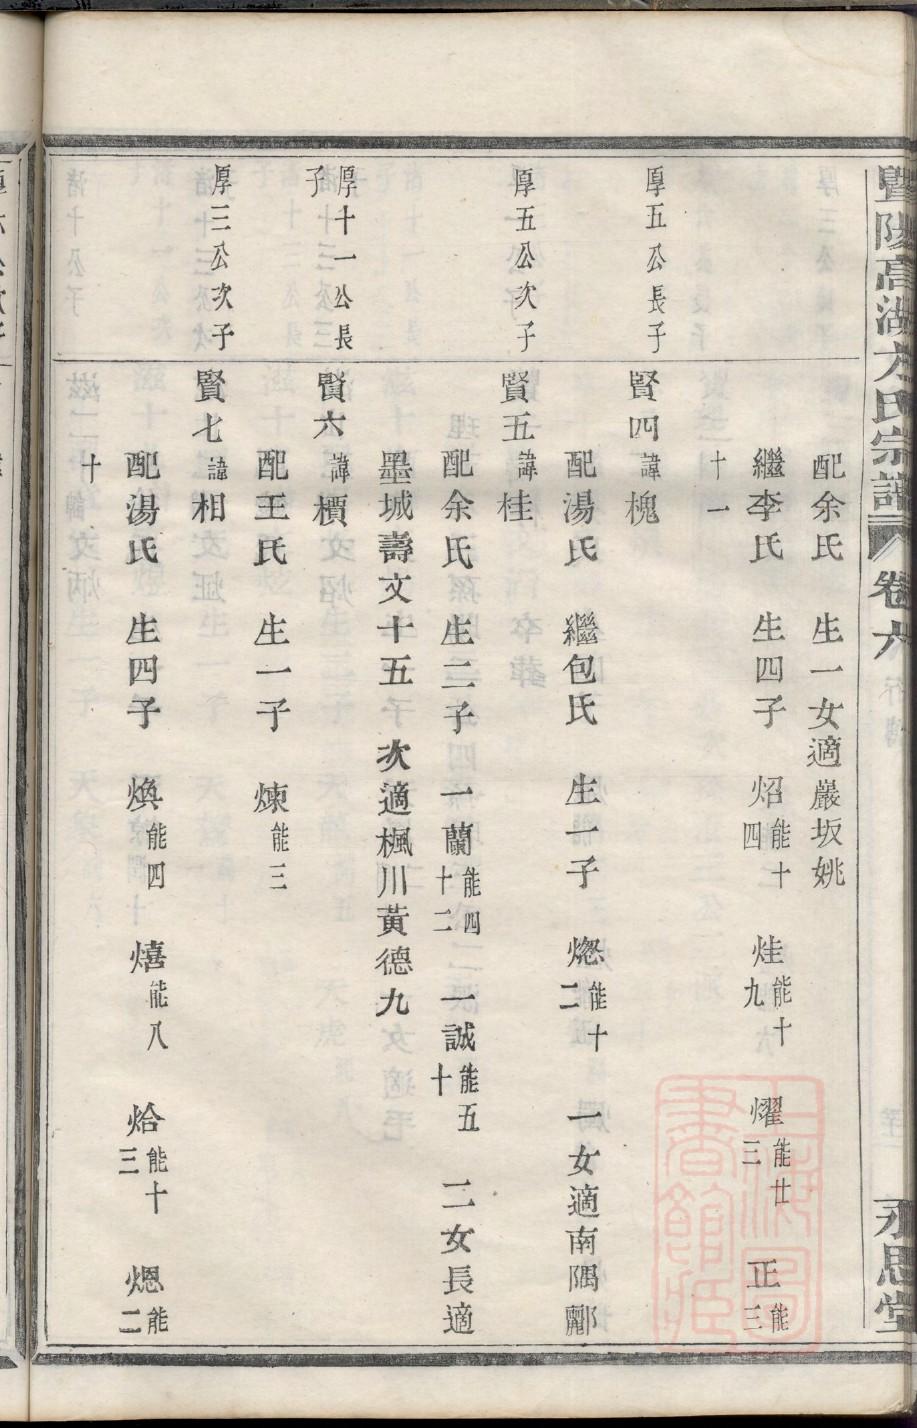 暨陽高湖方氏宗譜 卷六 永思堂
配余氏 生一女適嚴坂姚
繼李氏 生四子 炤能十四 烓能十九 燿能廿三 正能三
十一
厚五公長子 賢四諱槐
配湯氏 繼包氏 生一子 燃能十二 一女適南隅酈
厚五公次子 賢五諱桂
配余氏 生二子 一蘭能四十二 一誠能五十 二女長適
墨城壽文十五 次適楓川黃德九
厚十一公長子 賢六諱檟
配王氏 生一子 煉能三
厚三公次子 賢七諱相
配湯氏 生四子 煥能四 熺能八 烚能十三 煾能二
十